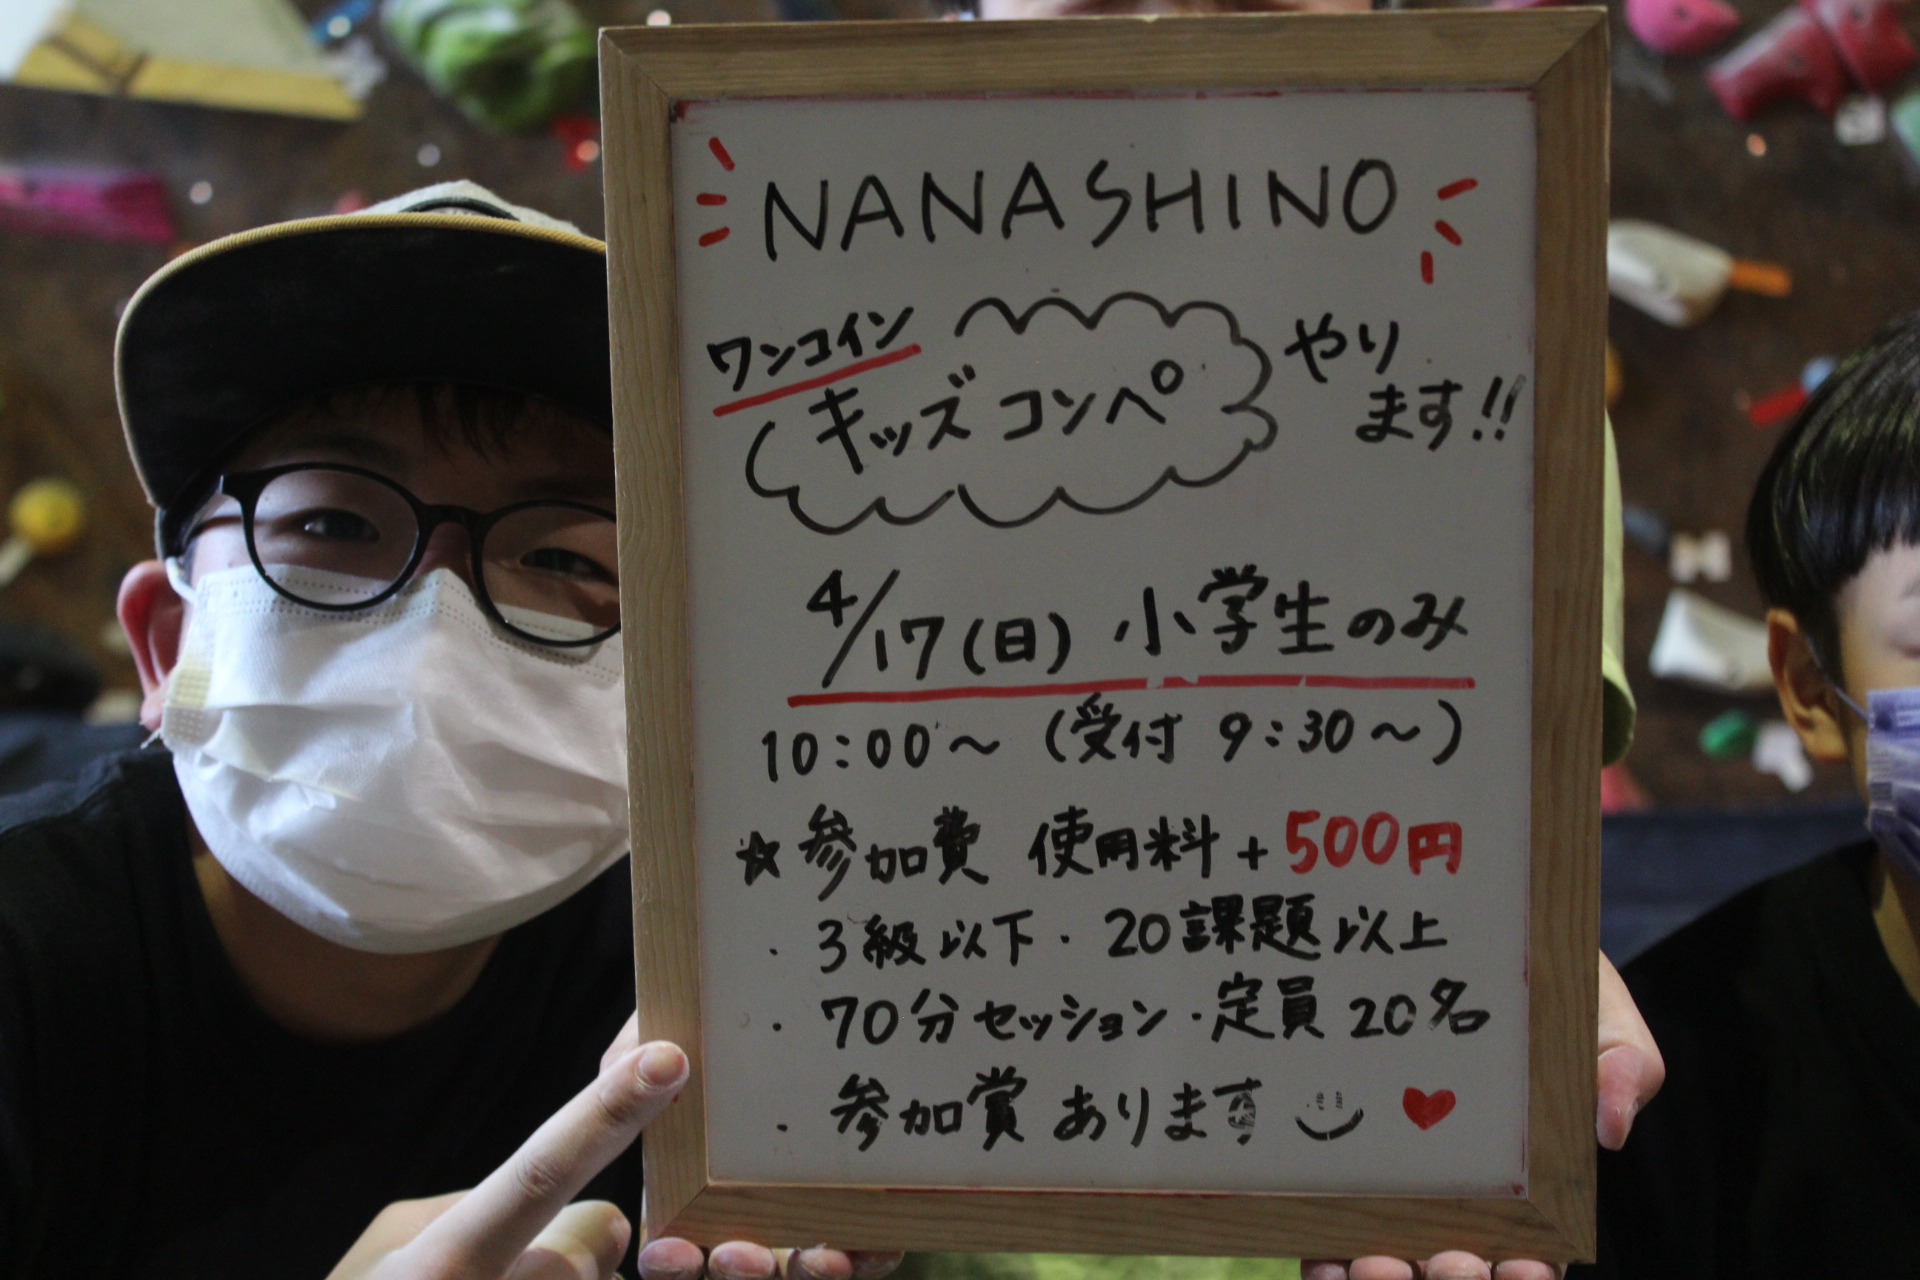 NANASHINO
ワンコイン
キッズコンペ
やり
ます!!
4/17(日) 小学生のみ
10:00〜 (受付 9:30〜)
☆参加費 使用料+500円
・3級以下・20課題以上
・70分セッション・定員20名
・参加賞あります